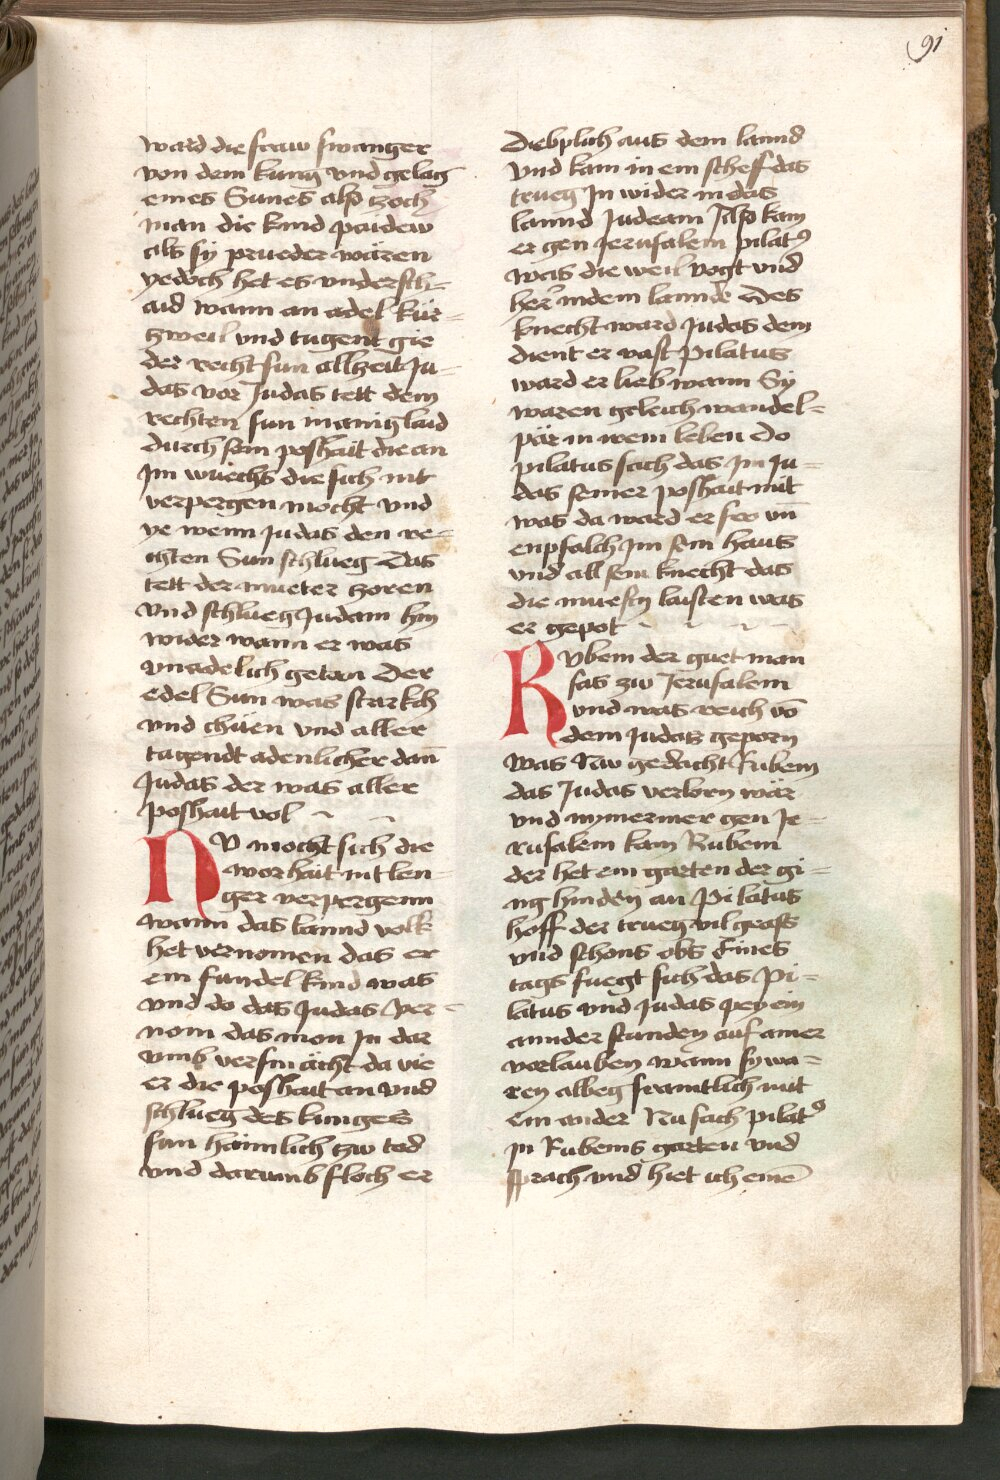 91
ward die fraw swanger
von dem kung und gelag
eines Sunes also zoch
man die kind paidew
als sy prueder wären
yedoch het es undersch-
aid wann an adel kür-
tzweil und tugent gie
der recht sun allzeit Ju-
das vor Judas tett dem
rechten sun manig laid
durch sein poshait die an
Im wuechs die sich nit
verpergen mocht und
ye wenn Judas den re-
chten Sun schlueg Das
tett der mueter zoren
und schlueg Judam hin
wider wann er was
unadelich getan Der
edel Sun was starkch
und chüen und aller
tugendt adenlicher dan̄
Judas der was aller
poshait vol
NU mocht sich die
worhait nit len-
ger verpergenn
wann das lannd volk
het vernomen das er
ein fundel kind was
und do das Judas ver-
nom das man In dar
umb versmächt da vie
er die poshait an und
schlueg des kunges
sun haimlich tzw tod
und darumb floch er
Dieblich aus dem lannd
und kam in ein scheff das
trueg In wider in das
lannd Judeam Also kam
er gen Jerusalem pilatꝰ
was die weil vogt und
her in dem lannde Des
knecht ward Judas dem
dient er vast Pilatus
ward er lieb wann Sy
waren geleich wandel-
pär in irem leben Do
pilatus sach das Im Ju-
das seiner poshait mit
was da ward er fro un̄
enpfalch Im sein haus
und all sein knecht das
die muesty laisten was
er gepot
Rubem der guet man
sas zw Jerusalem
und was reich vō
dem Judas geporn
was Nw gedacht Rubem
das Judas verlorn wär
und nymermer gen Je-
rusalem kam Rubem
der het ein garten der gi-
ng hinden an Pilatus
hoff der trueg vil gross
und schons obs Eines
tags fuegt sich das Pi-
latus und Judas pey ein
annder stunden auf ainer
vorlauben wann sy wa-
ren albeg framtlich mit
ein ander Nu sach pilatꝰ
in Rubems garten und
sprach und hiet ich einē